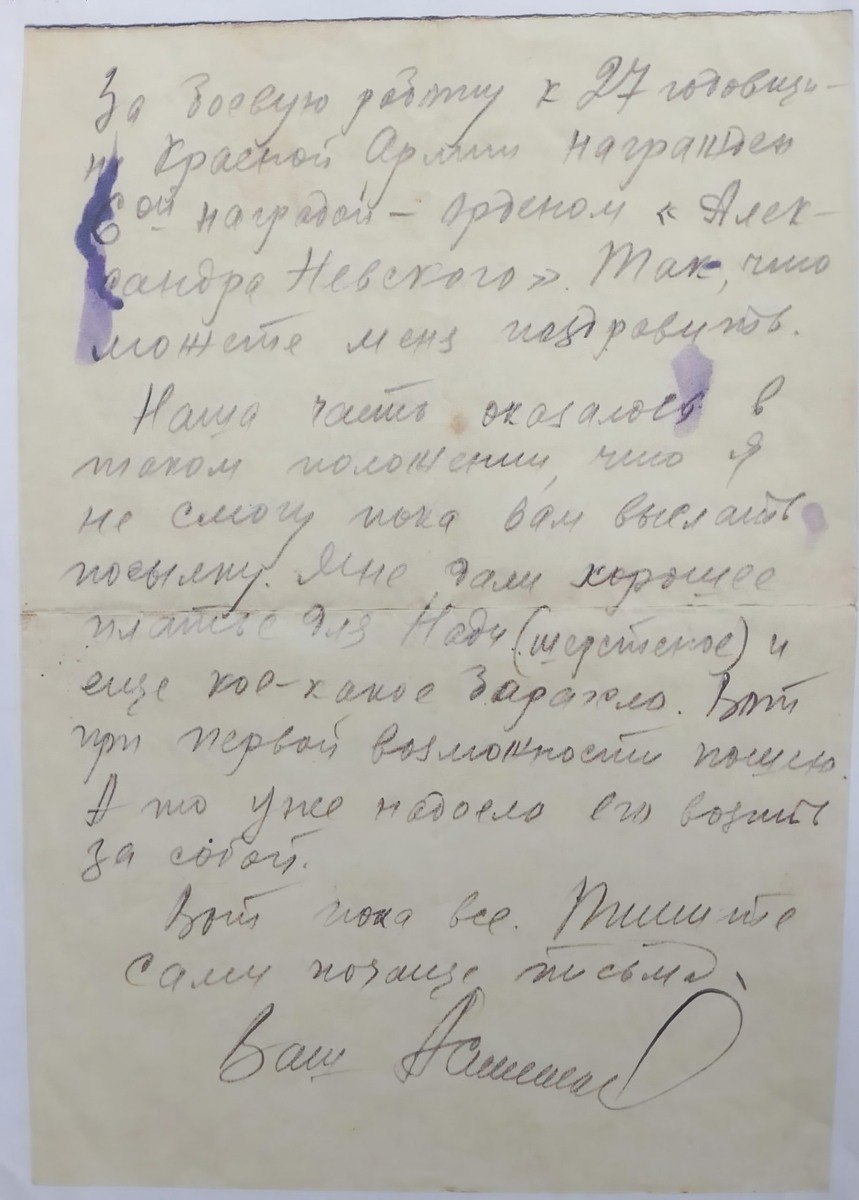 За боевую работу к 27 годовщи-
не Красной Армии награжден
6ой наградой – орденом « Алек-
сандра Невского». Так, что
можете меня поздравить.
Наша часть оказалось в
таком положении, что я
не смогу пока вам выслать
посылку. Мне дали хорошее
платье для Нади (шерстеное) и
еще кое-какое барахло. Вот
при первой возможности пошлю.
А то уже надоело его возить
за собой.
Вот пока все. Пишите
сами почаще письма.
Ваш